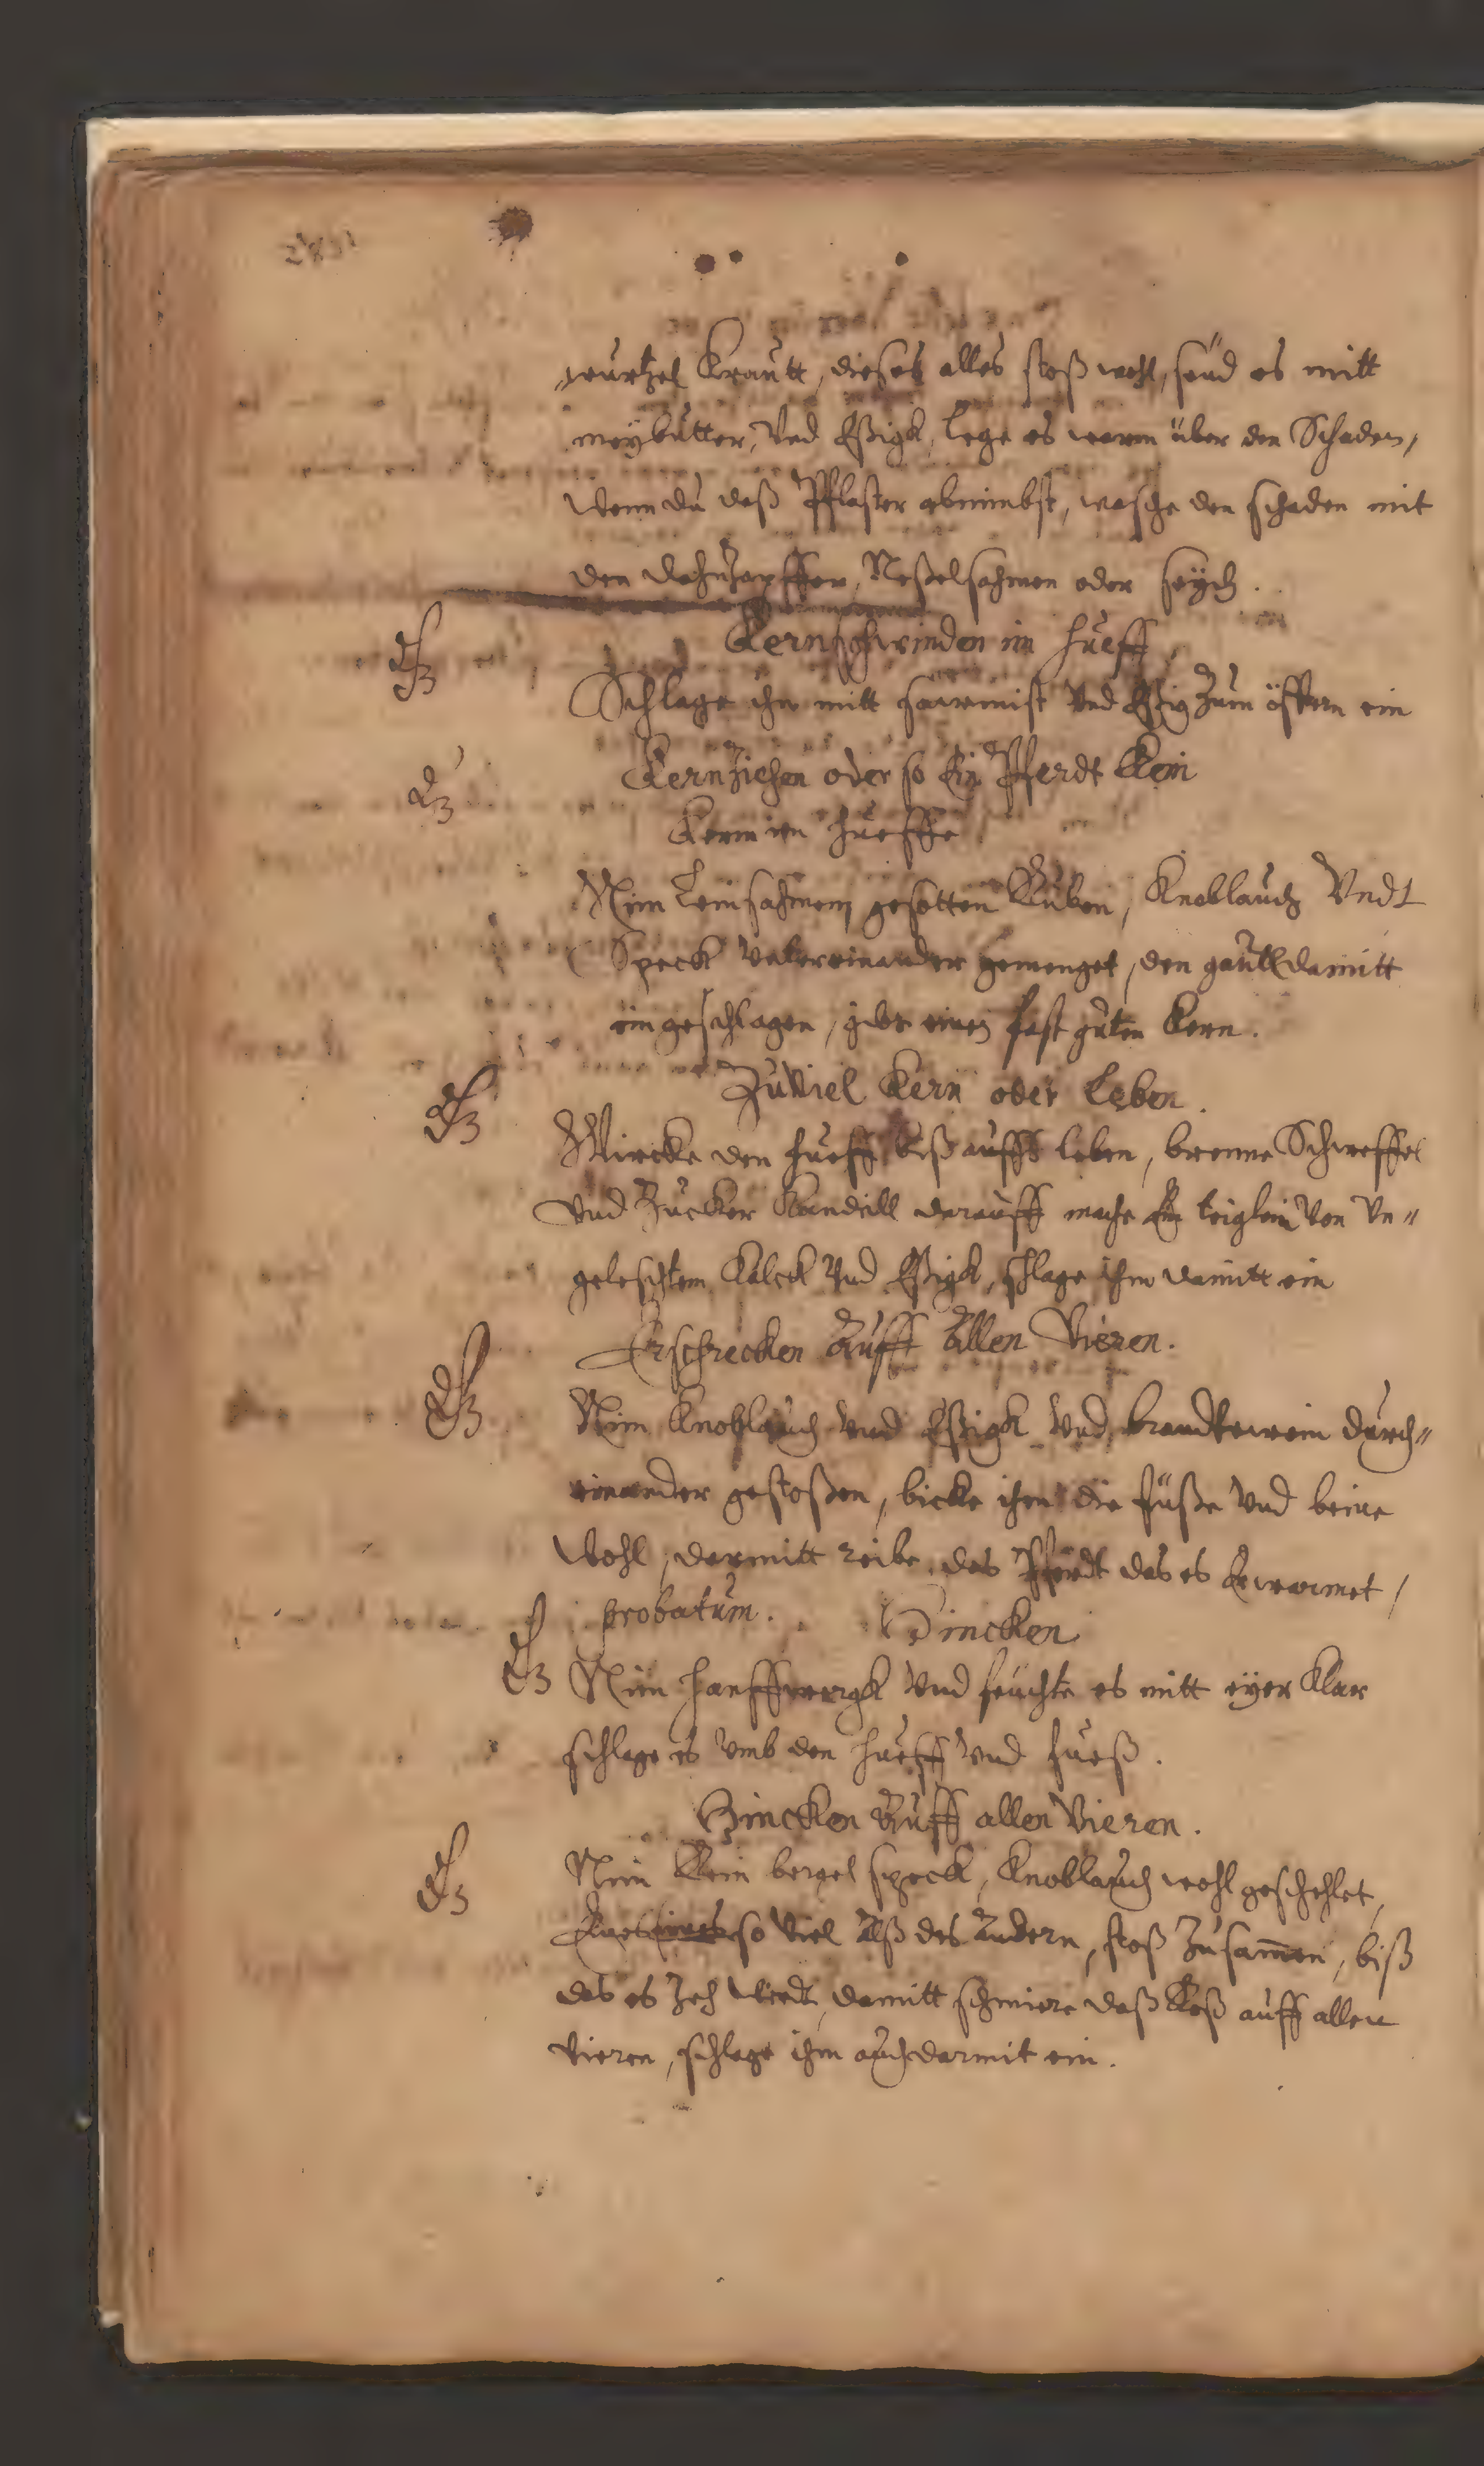 wurtzel Krautt, dieses alles stoß wohl, seud es mitt
meybutter, Vnd Eßigk, lege es warm über den Schaden,
Wenn du daß Pflaster abnimbst, wasche den schaden mit
den Neßelsahmen oder seych.
Kernschwinden im hueff
Schlage ihn mitt sawmist Vnd Eßig Zum öfftern ein
KernZiehen oder so Ein Pferdt Kein
Kern im hueffe
Nim Leinsahmen gesotten Ruben, Knoblauch Vndt
Speck Vntereinander gemenget, den gaull damitt
eingeschlagen, gibt einen fast guten Kern.
ZuViel Kern oder Leben.
Wircke den hueff biß auffs leben, brenne Schweffel
Vnd Zucker Kandill darauff mache Ein teiglein Von Vn„
geleschtem Kalck Vnd Eßigk, schlage ihm damitt ein
Erschrecken Auff Allen Vieren.
Nim Knoblauch Vnd Eßigk Vnd brandtewein durch„
einander gestoßen, bicke ihm die füße Vnd beine
Wohl, darmitt reibe das Pferdt das es Erwarmet,
probatum. Hincken
Nim hanffwergk Vnd feuchte es mitt eyer Klar
schlage es Vmb den hueff Vnd fueß.
Hincken Auff allen Vieren.
Nim Klein speck, Knoblauch wohl geschehlet,
so Viel Alß des Andern, stoß Zusam̄en, biß
das es Zeh Wirdt, damitt schmiere daß Roß auff allen
Vieren, schlage ihm auch darmit ein.